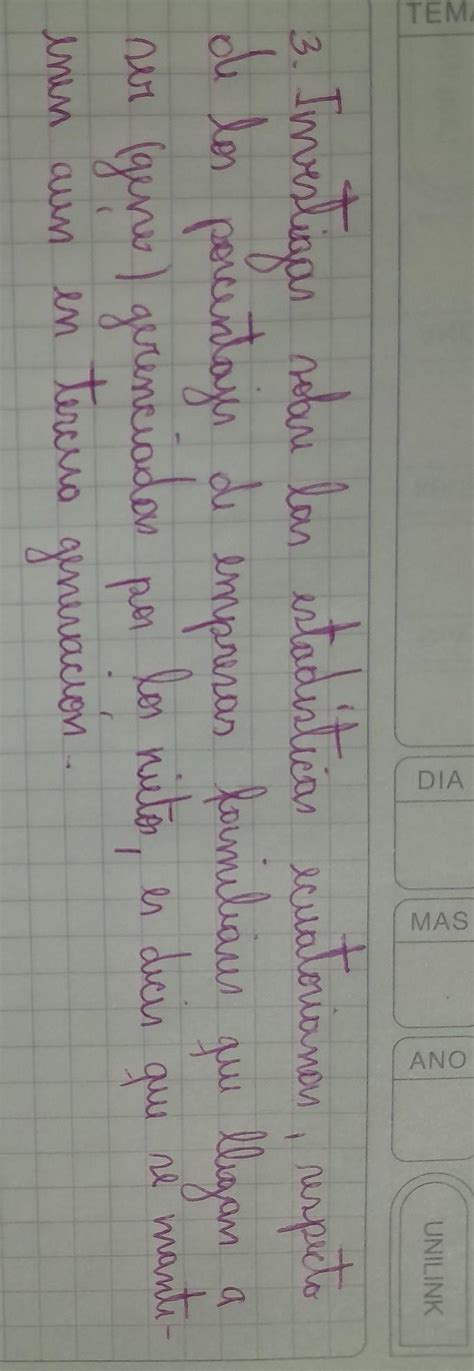 TEMA
DIA
MAS
ANO
UNILINK
3. Investigar sobre las estadísticas ecuatorianas, respecto
de los porcentajes de empresas familiares que llegan a
ser (géner) gerenciadas por los nietos, es decir que se manti-
enen aun en tercera generación.